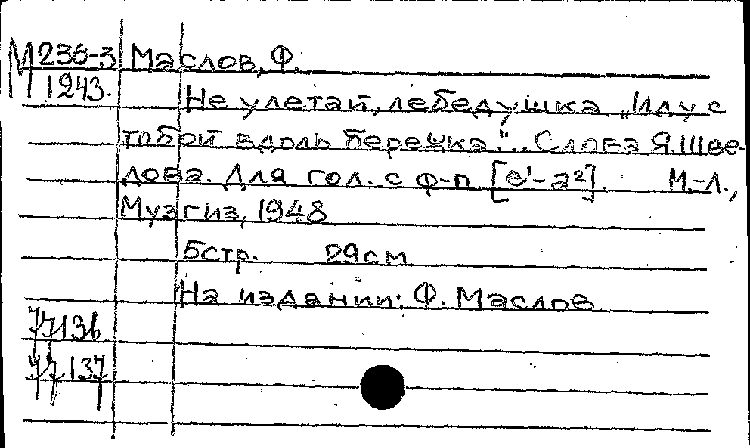 М 236-3 Маслов, Ф.
1243.
Не улетай, лебедушка „Иду с
тобой вдоль бережка“.. Слова Я. Шве-
дова. Для гол. с ф-п. [e¹-a²]. М.-Л.,
Музгиз, 1948
5стр. 29см
На издании: Ф. Маслов
77136
77137